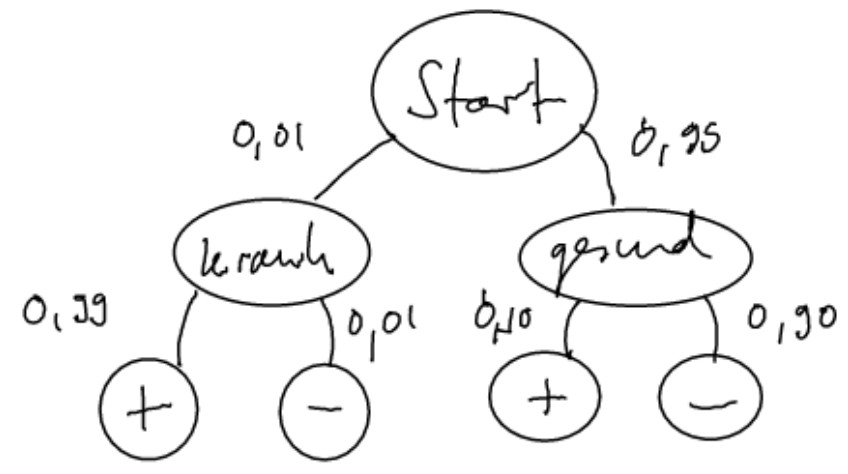 Start
0,01 0,95
krank gesund
0,99 0,01 0,10 0,90
+ - + -